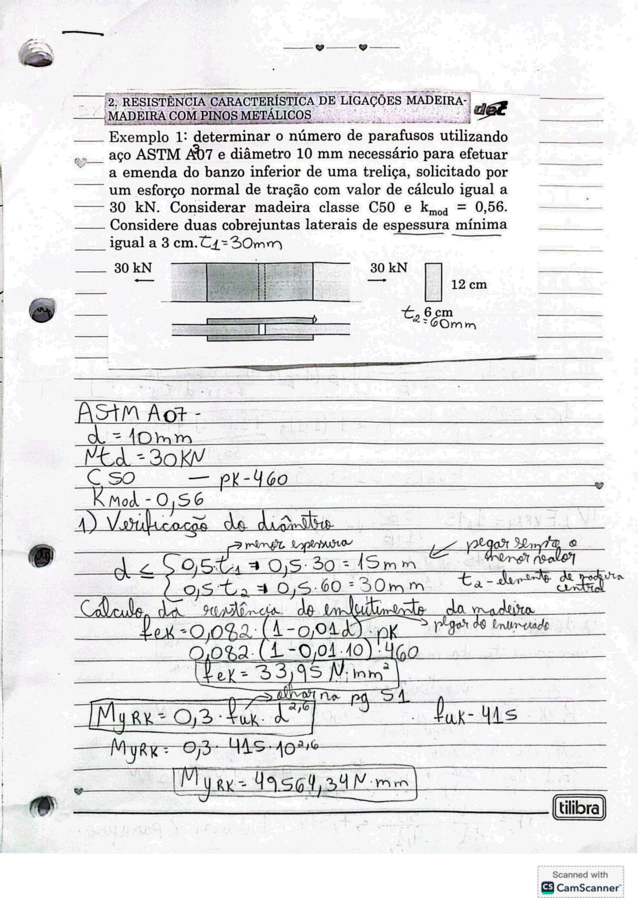 2. RESISTÊNCIA CARACTERÍSTICA DE LIGAÇÕES MADEIRA-
MADEIRA COM PINOS METÁLICOS
dec
Exemplo 1: determinar o número de parafusos utilizando
aço ASTM A307 e diâmetro 10 mm necessário para efetuar
a emenda do banzo inferior de uma treliça, solicitado por
um esforço normal de tração com valor de cálculo igual a
30 kN. Considerar madeira classe C50 e kmod = 0,56.
Considere duas cobrejuntas laterais de espessura mínima
igual a 3 cm. t1=30mm
30 kN
30 kN
12 cm
6 cm
t2=60mm
ASTM A07 -
d = 10mm
Ntd = 30KN
C50 — ρK-460
KMod - 0,56
1) Verificação do diâmetro
menor espessura
pegar sempre o
menor valor
d ≤ { 0,5.t1 → 0,5.30 = 15mm
0,5t2 → 0,5.60 = 30mm
t2 - elemento de madeira
central
Calculo da resistência do embutimento da madeira
feK = 0,082.(1-0,01d).ρK
pegar do enunciado
0,082.(1-0,01.10).460
feK = 33,95 N/mm²
olhar na pg 51
MyRK = 0,3.fuK.d^2,6
fuK - 415
MyRK = 0,3.415.10^2,6
MyRK = 49.564,34 N.mm
tilibra
Scanned with
CS CamScanner